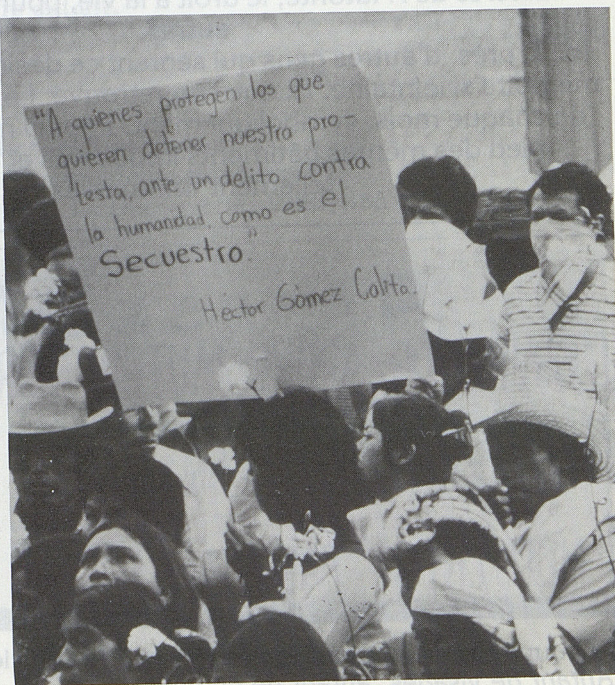 "A quienes protegen los que
quieren detener nuestra pro-
testa, ante un delito contra
la humanidad, como es el
Secuestro."
Hector Gómez Calito.